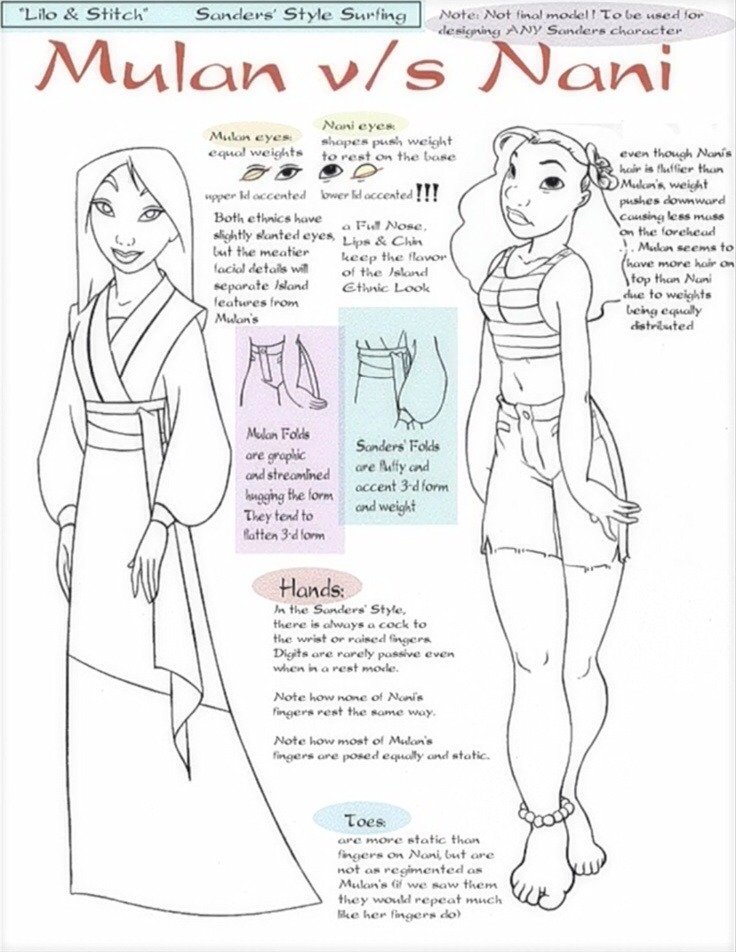 "Lilo & Stitch" Sanders' Style Surfing
Note: Not final model! To be used for
designing ANY Sanders character
Mulan v/s Nani
Mulan eyes:
equal weights
upper lid accented
Nani eyes:
shapes push weight
to rest on the base
lower lid accented !!!
Both ethnics have
slightly slanted eyes,
but the meatier
facial details will
separate Island
features from
Mulan's
a Full Nose,
Lips & Chin
keep the flavor
of the Island
Ethnic Look
even though Nani's
hair is fluffier than
Mulan's, weight
pushes downward
causing less mass
on the forehead
... Mulan seems to
have more hair on
top than Nani
due to weights
being equally
distributed
Mulan Folds
are graphic
and streamlined
hugging the form
They tend to
flatten 3-d form
Sanders' Folds
are fluffy and
accent 3-d form
and weight
Hands:
In the Sanders' Style,
there is always a cock to
the wrist or raised fingers.
Digits are rarely passive even
when in a rest mode.
Note how none of Nani's
fingers rest the same way.
Note how most of Mulan's
fingers are posed equally and static.
Toes:
are more static than
fingers on Nani, but are
not as regimented as
Mulan's (if we saw them
they would repeat much
like her fingers do)